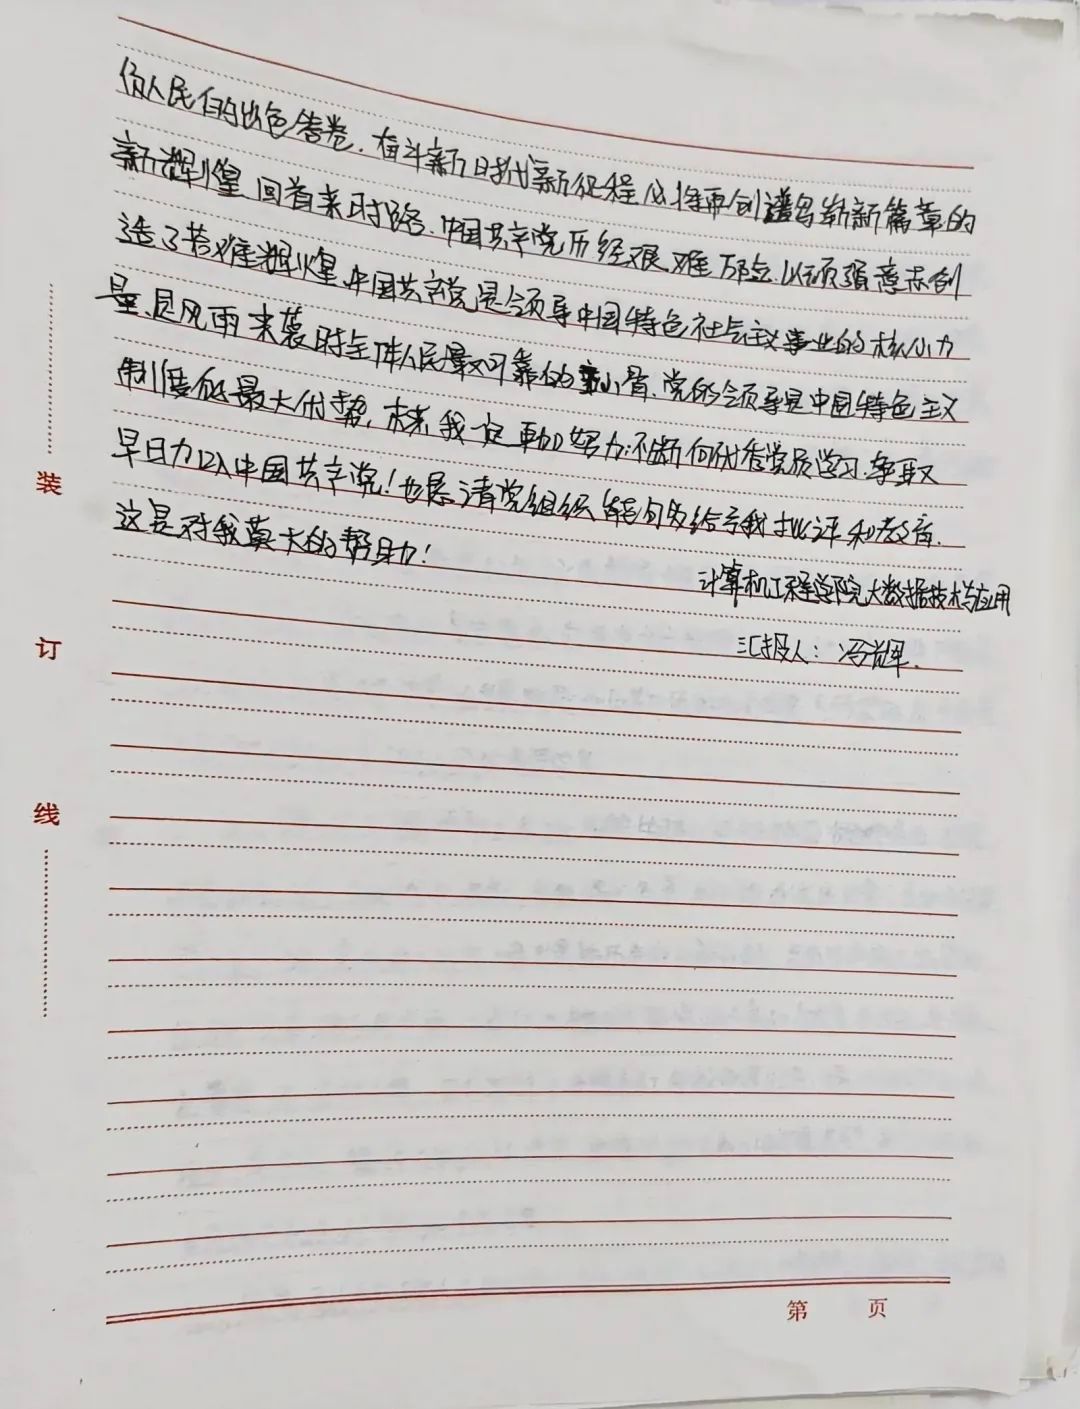 份人民的出色答卷.奋斗新时代新征程必将再创谱写崭新篇章的
新辉煌 回首来时路.中国共产党历经艰难万险.以顽强意志创
造了苦难辉煌.中国共产党是领导中国特色社会主义事业的核心力
量、是风雨来袭时全体人民最可靠的主心骨.党的领导是中国特色主义
制度的最大优势,未来,我一定更加努力.不断向优秀党员学习.争取
早日加入中国共产党!也恳请党组织能够多给予我批评和教育.
这是对我莫大的帮助!
计算机工程学院大数据技术与应用
汇报人:冯
装
订
线
第 页